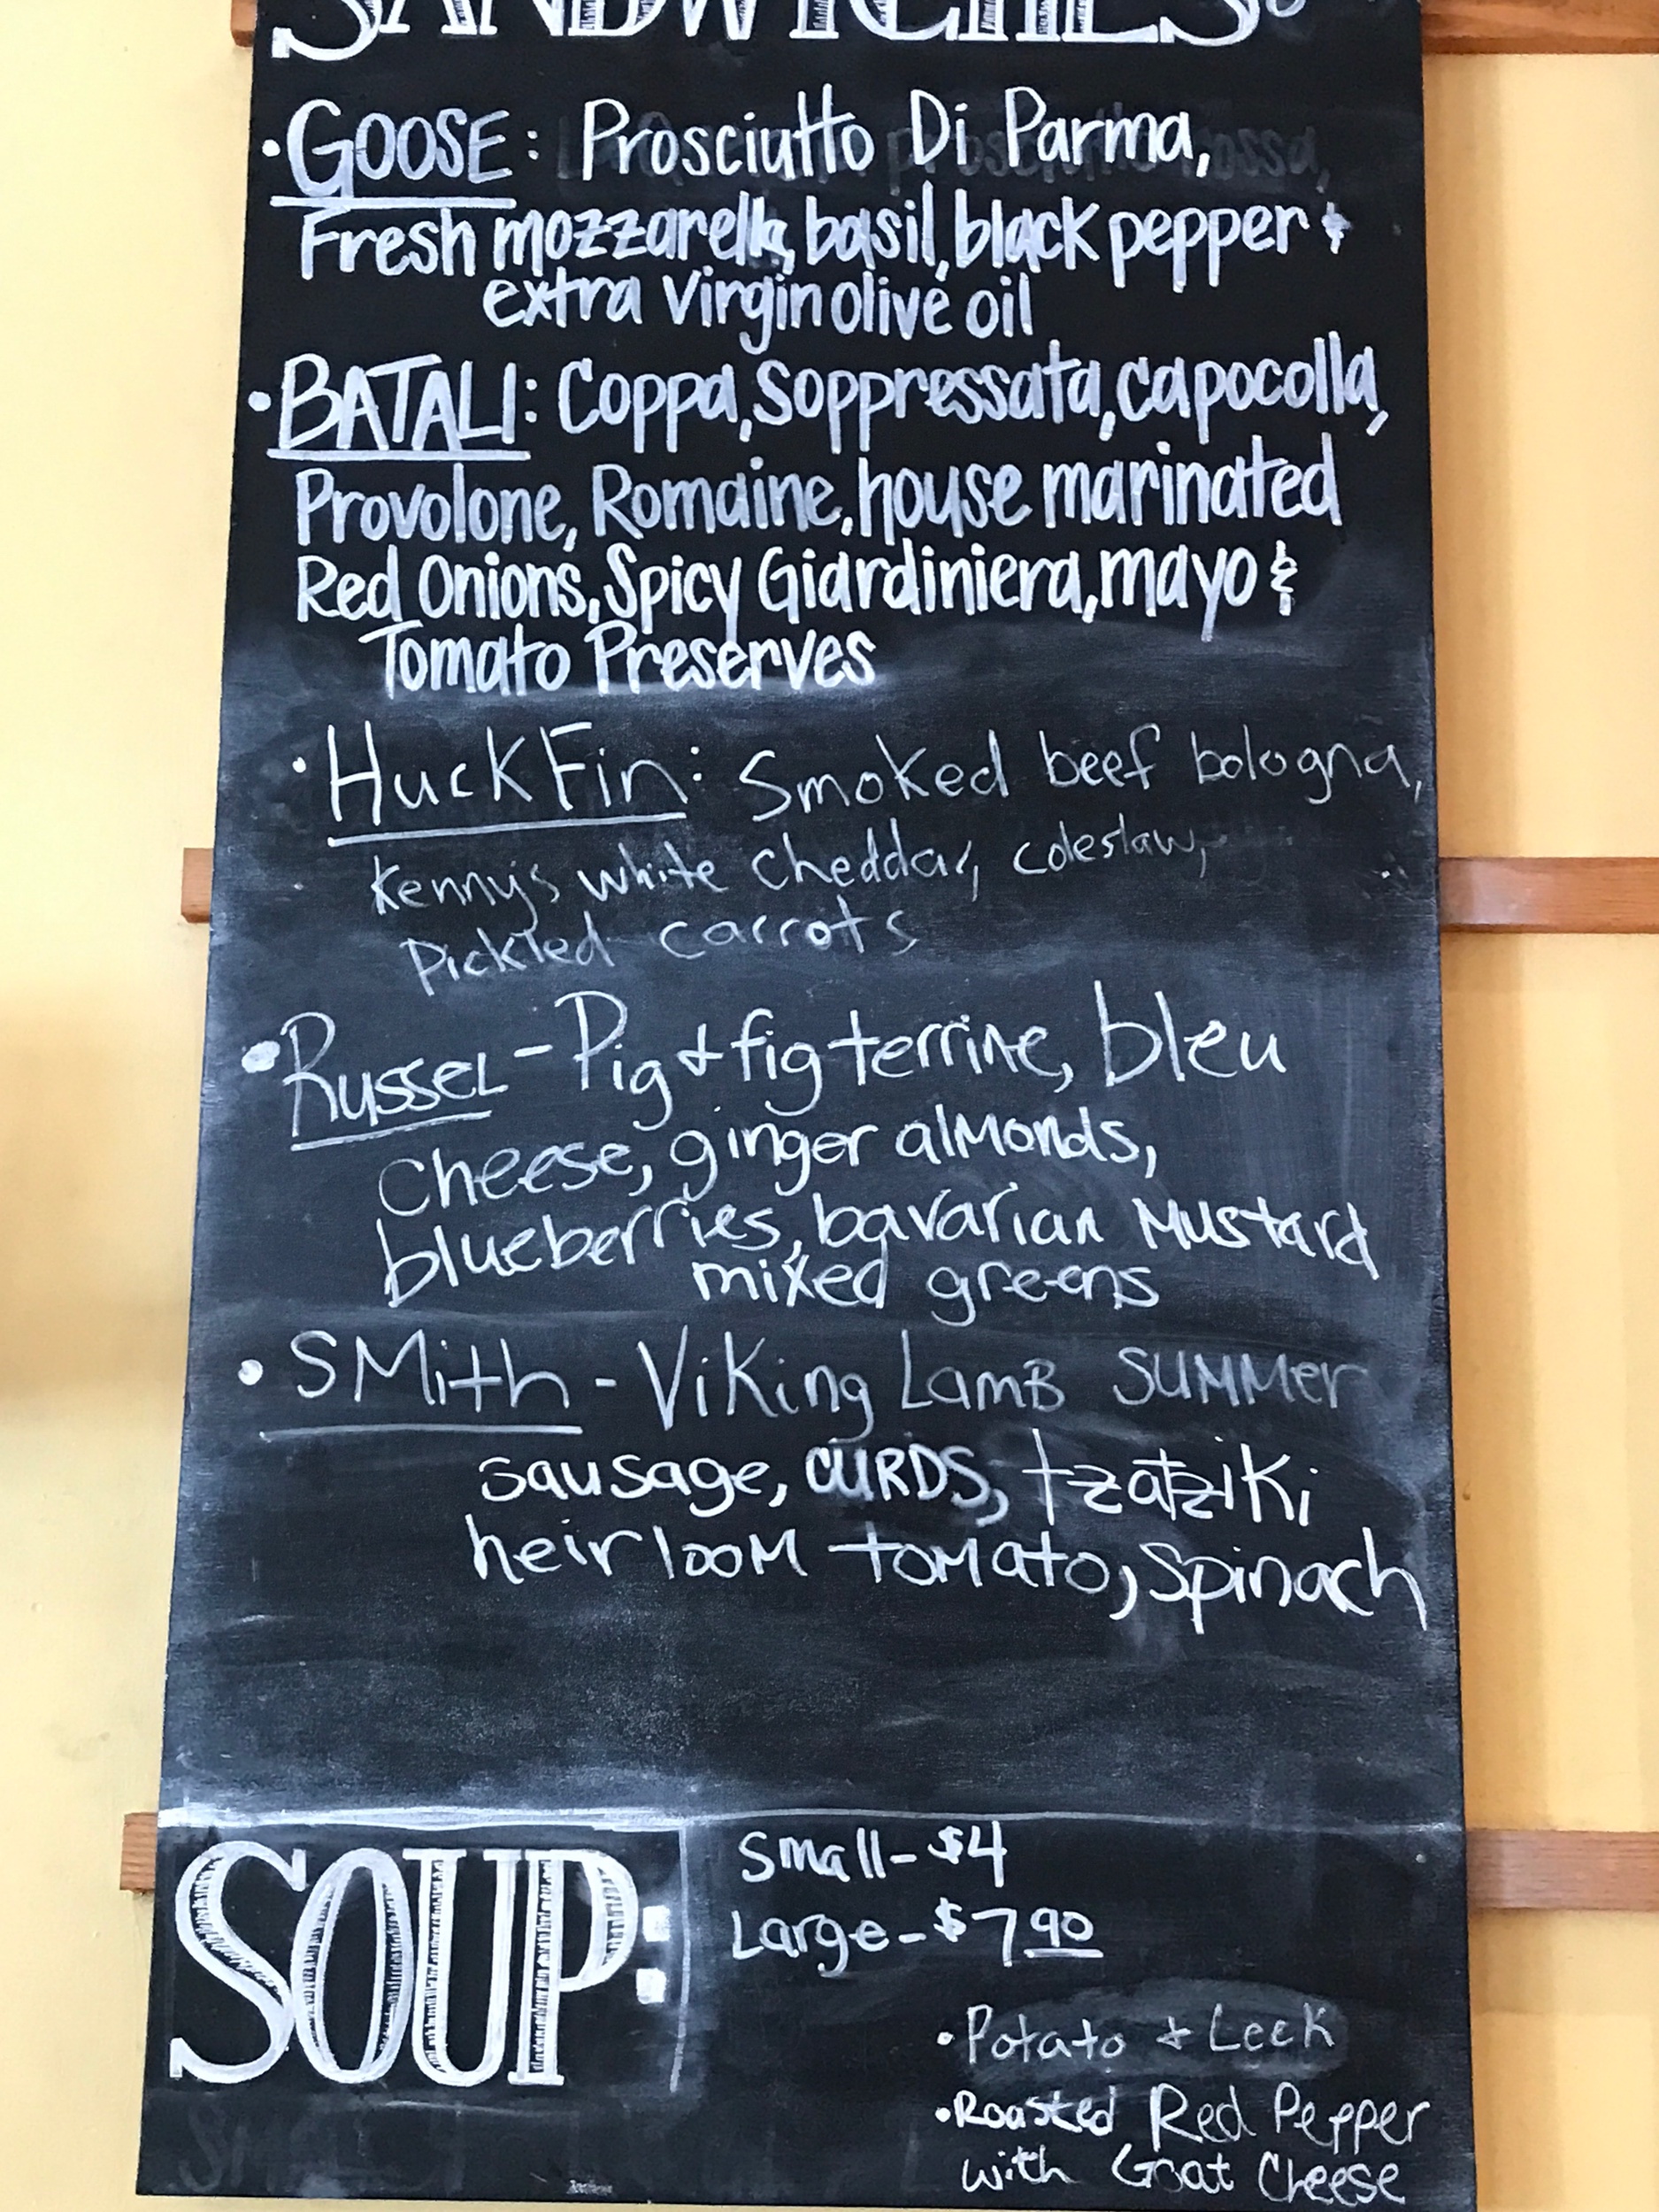 SANDWICHES
• GOOSE: Prosciutto Di Parma,
Fresh mozzarella, basil, black pepper &
extra Virgin olive oil
• BATALI: Coppa, Soppressata, capocolla,
Provolone, Romaine, house marinated
Red Onions, Spicy Giardiniera, mayo &
Tomato Preserves
• Huck Fin: Smoked beef bologna,
Kenny's white cheddar, coleslaw,
Pickled carrots
• Russel - Pig & fig terrine, bleu
cheese, ginger almonds,
blueberries, bavarian mustard
mixed greens
• SMith - Viking LamB SUMMer
sausage, CURDS, tzatziki
heirlooM toMato, Spinach
SOUP:
Small - $4
Large - $7 90
• Potato & Leek
• Roasted Red Pepper
with Goat Cheese